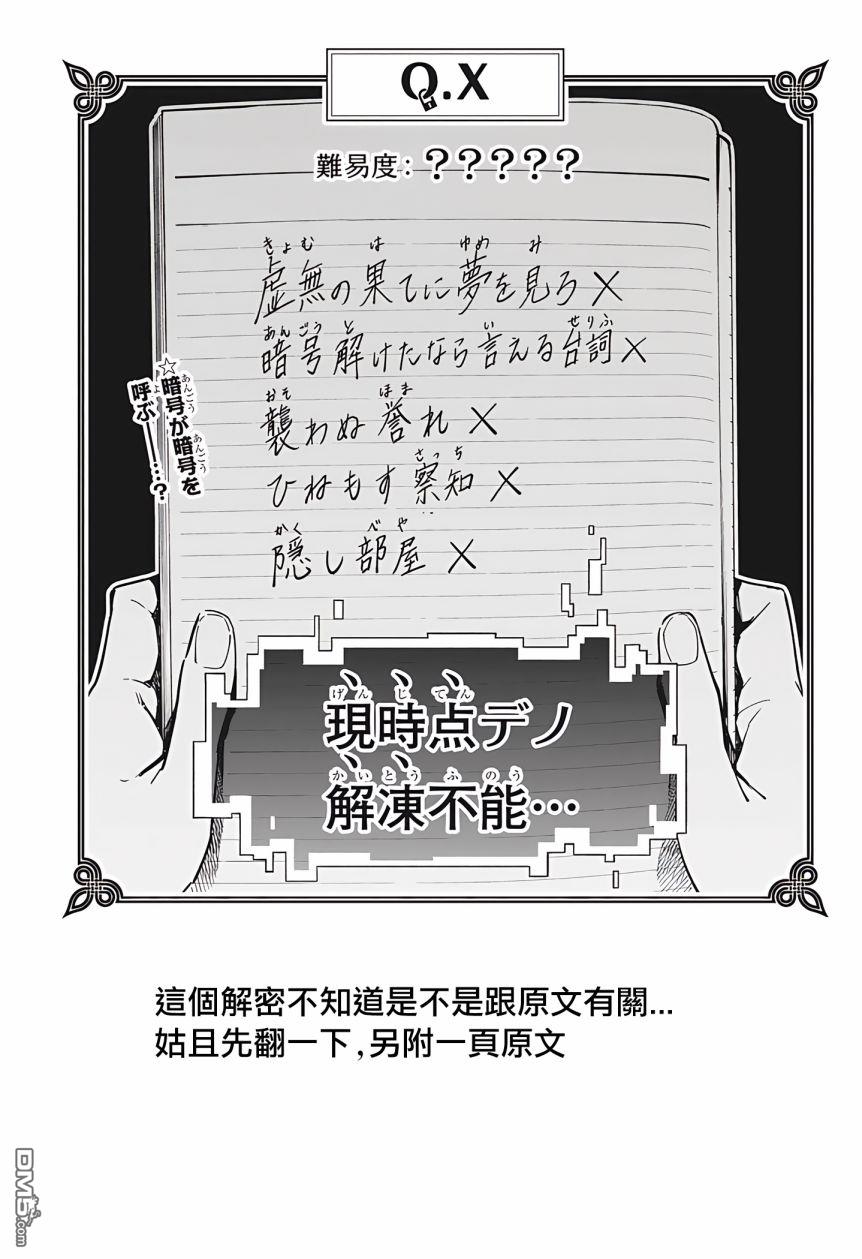 Q.X
難易度：？？？？？
虚無の果てに夢を見ろ×
暗号解けたなら言える台詞×
襲わぬ誉れ×
ひねもす察知×
隠し部屋×
☆暗号が暗号を
呼ぶ──…？
現時点デノ
解凍不能…
這個解密不知道是不是跟原文有關...
姑且先翻一下,另附一頁原文
DM5.com